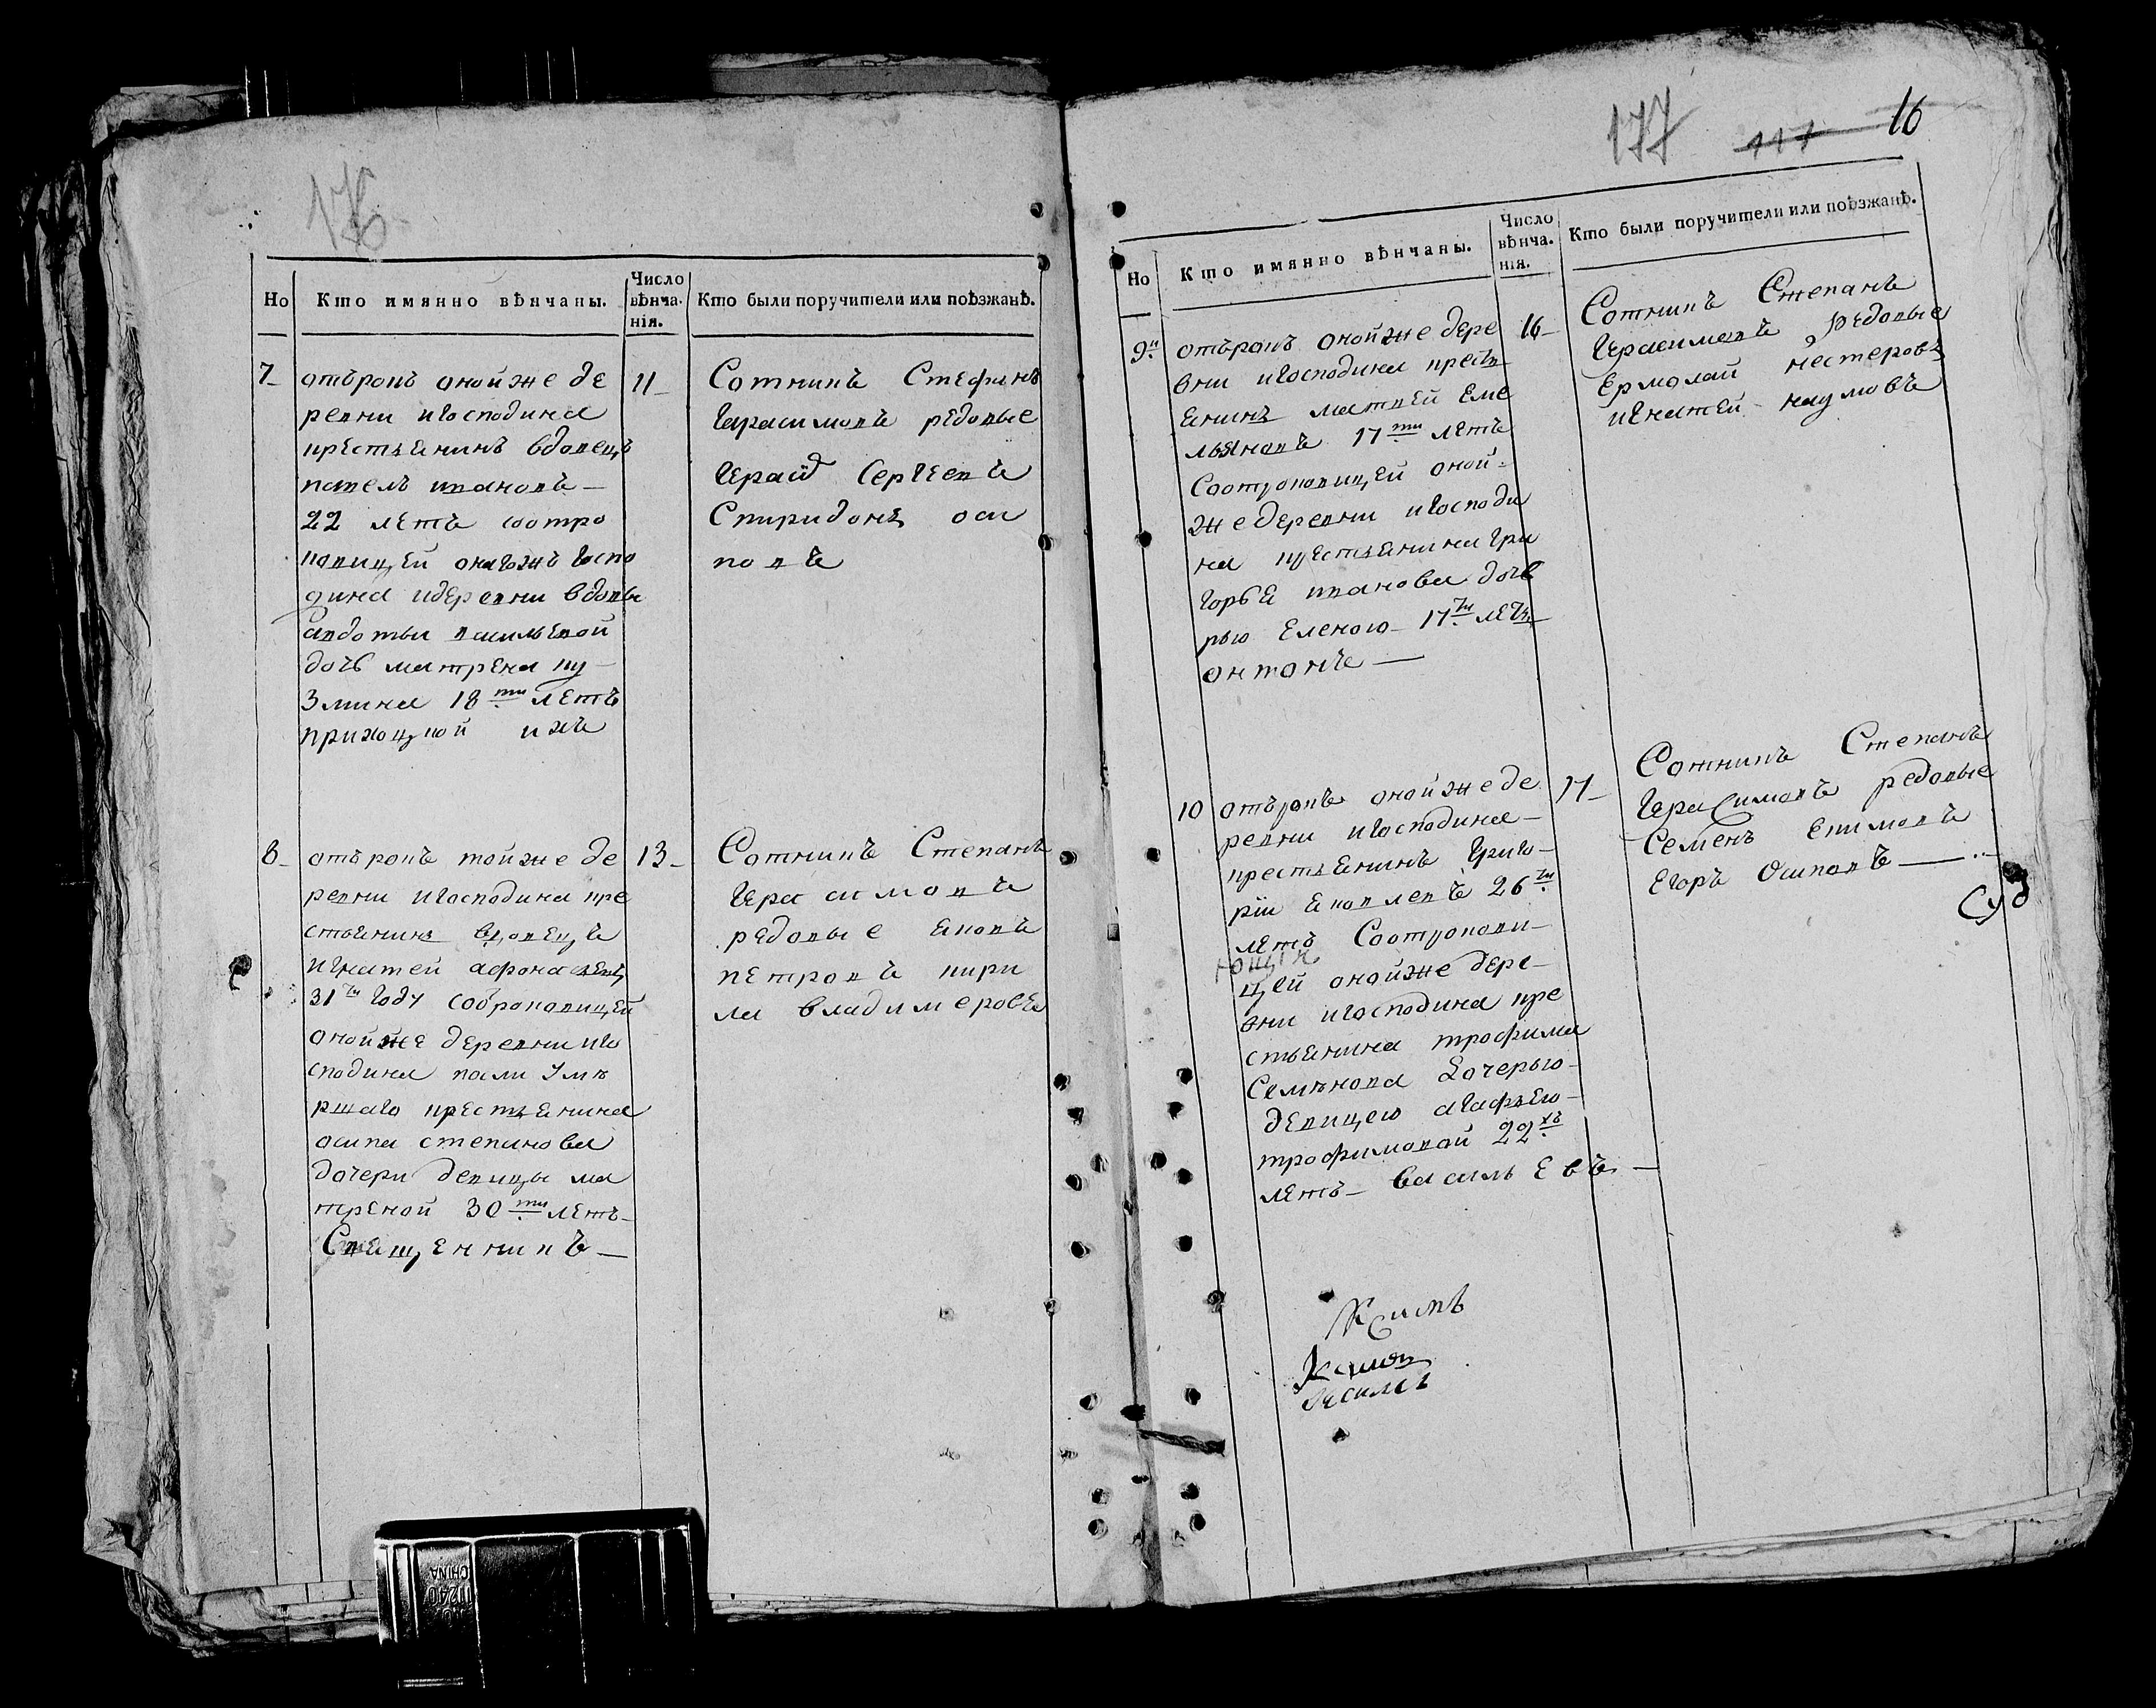 176
Но
Кто имянно вѣнчаны.
Число вѣнча-
нія.
Кто были поручители или поѣзжанѣ.
7
отърокъ онойже де
ревни игосподина
крестьянинъ вдовецъ
павелъ ивановъ
22 летъ соотро
ковицей оногожъ госпо
дина идеревни вдовы
авдотьи васильевой
дочь матрена ку
змина 18ти летъ
11
Сотникъ Стефанъ
Герасимовъ редовые
Сергеевъ
Спиридонъ оси
повъ
8
отърокъ тойже де
ревни игосподина кре
стьянинъ вдовецъ
игнатей афонасьевъ
31ти году соброковицей
онойже деревни иго
сподина
ршаго крестьянина
осипа степанова
дочери девицы ма
треной 30ти летъ
Священникъ
13
Сотникъ Степанъ
Герасимовъ
редовые яковъ
петровъ кири
ла владимеровъ
177 117 16
Но
Кто имянно вѣнчаны.
Число
вѣнча-
нія.
Кто были поручители или поѣзжанѣ.
9й
отърокъ онойже дере
вни игосподина кресть
янинъ матвей еме
льяновъ 17ти летъ
Соотроковицей оной
жедеревни игосподи
на крестьянина гри
горья иванова доче
рью Еленою 17ти летъ
16
Сотникъ Степанъ
Герасимовъ редовые
Ермолай нестеровъ
игнатей наумовъ
10
отърокъ онойже де
ревни игосподина
крестьянинъ григо
рїи яковлевъ 26ти
летъ Соотрокови
цей онойже дере
вни игосподина кре
стьянина трофима
Семенова дочерью
девицею агафьею
трофимовой 22хъ
летъ васильевъ
17
Сотникъ Степанъ
Герасимовъ редовые
Семенъ екимовъ
Егоръ Осиповъ